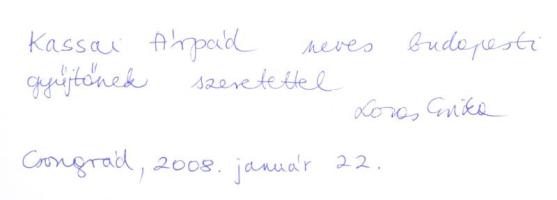 Kassai Árpád neves budapesti
gyűjtőnek szeretettel
Lovas Erika
Csongrád, 2008. január 22.